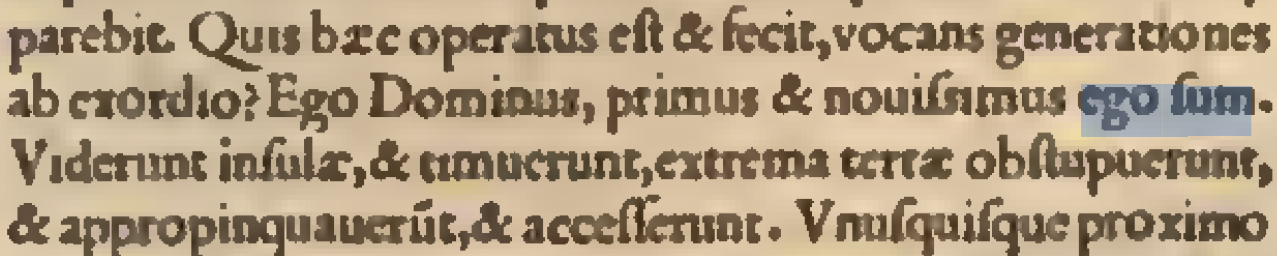 parebit. Quis hæc operatus est & fecit, vocans generationes
ab exordio? Ego Dominus, primus & nouissimus ego sum.
Viderunt insulæ, & timuerunt, extrema terræ obstupuerunt,
& appropinquauerūt, & accesserunt. Vnusquisque proximo